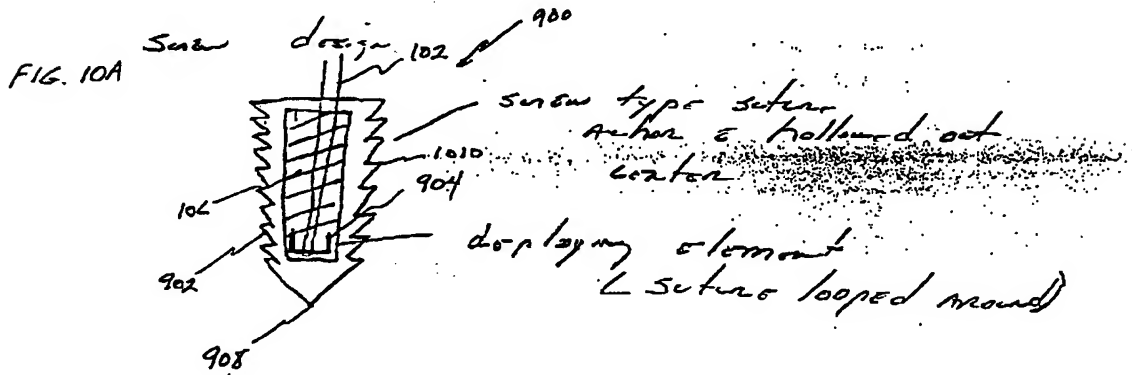 900
Screw design
102
FIG. 10A
screw type suture
Achor c hollowed out
center
1010
904
106
902
deploying element
( suture looped around)
908